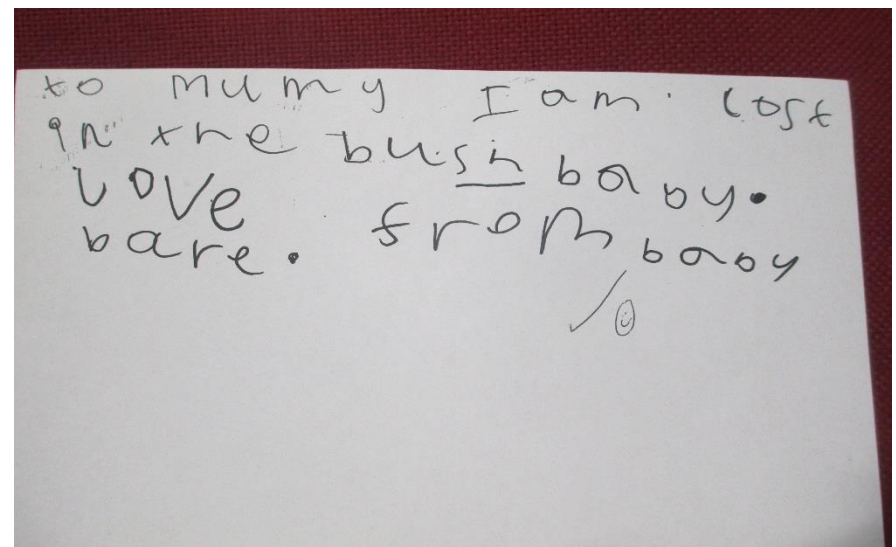 to mumy I am. lost
in the bush baby.
Love from baby
bare.